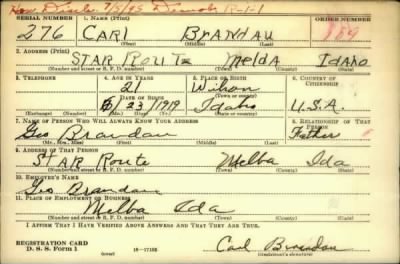 Hon. Disch 7/5/45 R-1-1
SERIAL NUMBER 1. NAME (Print) ORDER NUMBER
276 CARL BRANDAU
(First) (Middle) (Last)
2. ADDRESS (Print)
STAR ROUTE Melba Idaho
(Number and street or R. F. D. number) (Town) (County) (State)
3. TELEPHONE 4. AGE IN YEARS 5. PLACE OF BIRTH 6. COUNTRY OF CITIZENSHIP
21 Wilson
(Town or county)
DATE OF BIRTH
6/23/1919 Idaho U.S.A.
(Exchange) (Number) (Mo.) (Day) (Yr.) (State or country)
7. NAME OF PERSON WHO WILL ALWAYS KNOW YOUR ADDRESS 8. RELATIONSHIP OF THAT PERSON
Geo Brandau Father
(Mr., Mrs., Miss) (First) (Middle) (Last)
9. ADDRESS OF THAT PERSON
Star Route Melba Ida
(Number and street or R. F. D. number) (Town) (County) (State)
10. EMPLOYER'S NAME
Geo Brandau
11. PLACE OF EMPLOYMENT OR BUSINESS
Melba Ida
(Number and street or R. F. D. number) (Town) (County) (State)
I AFFIRM THAT I HAVE VERIFIED ABOVE ANSWERS AND THAT THEY ARE TRUE.
REGISTRATION CARD
D. S. S. Form 1 (over) 16-17105 Carl Brandau
(Registrant's signature)